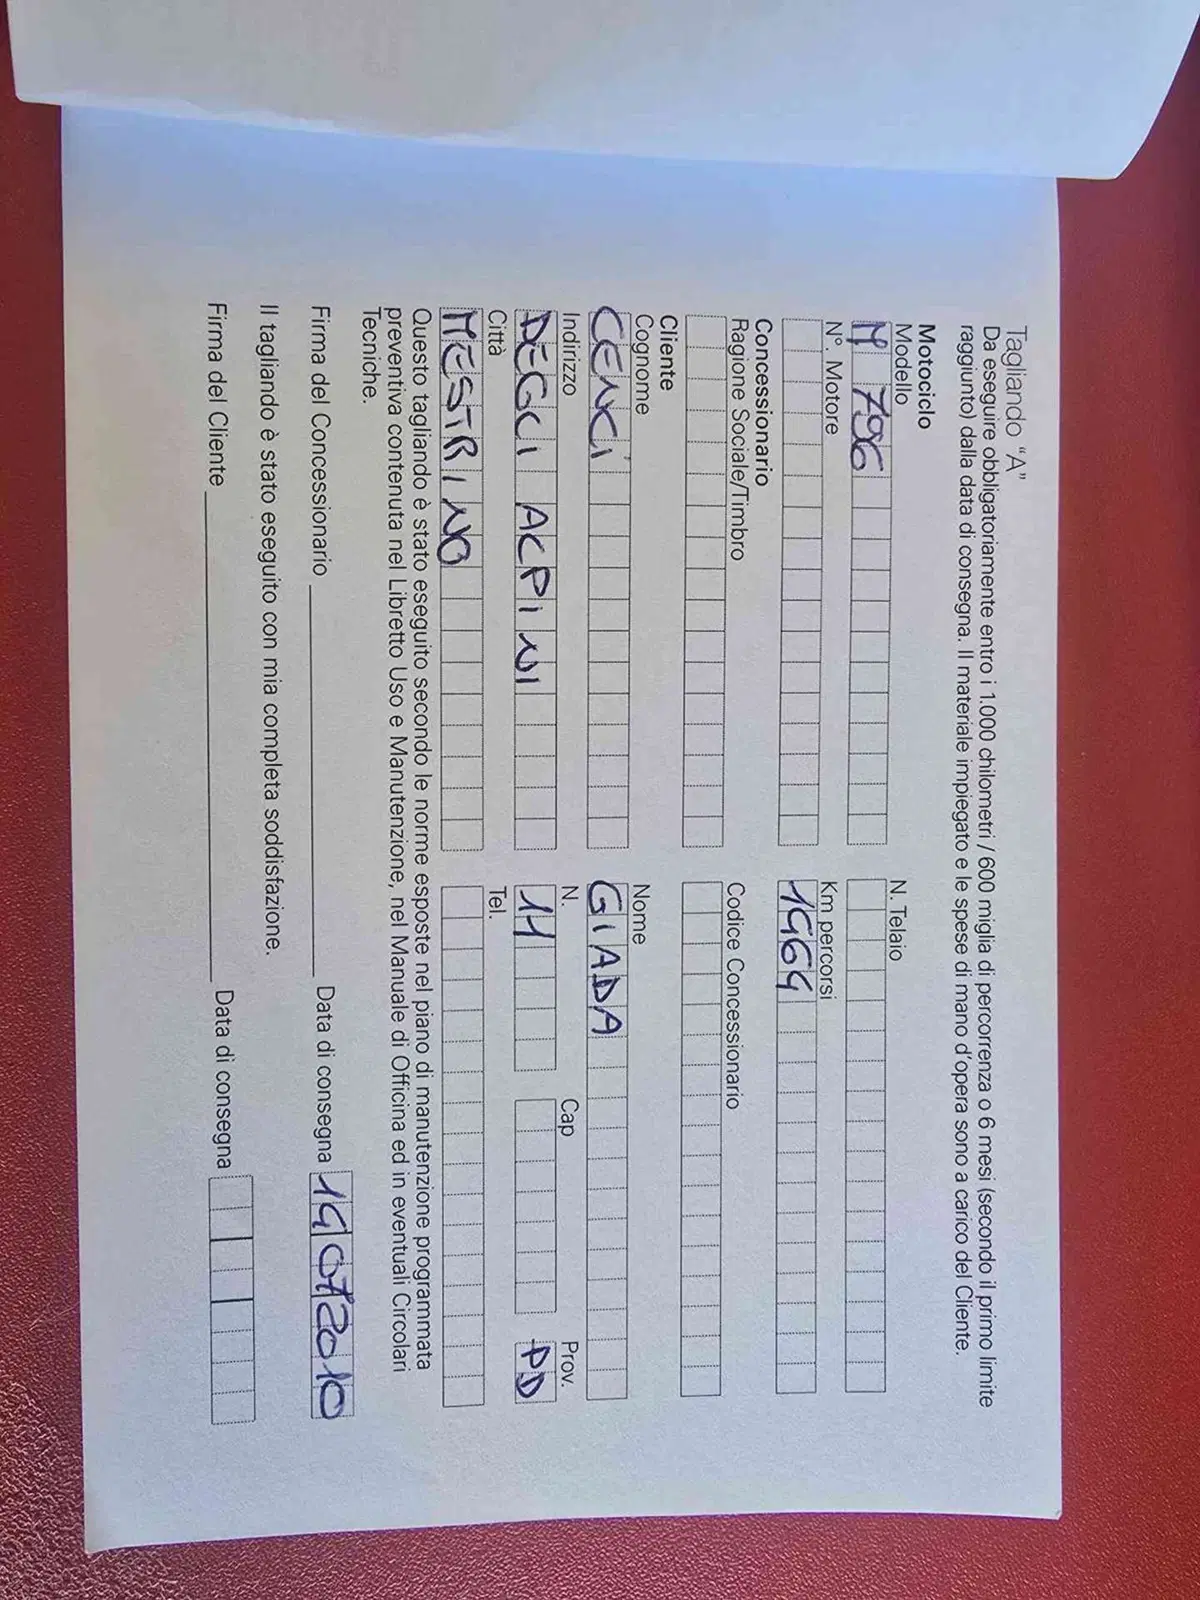 Tagliando "A"
Da eseguire obbligatoriamente entro i 1.000 chilometri / 600 miglia di percorrenza o 6 mesi (secondo il primo limite
raggiunto) dalla data di consegna. Il materiale impiegato e le spese di mano d'opera sono a carico del Cliente.
Motociclo
Modello N. Telaio
M 796
N°. Motore Km percorsi
1969
Concessionario
Ragione Sociale/Timbro Codice Concessionario
Cliente
Cognome Nome
CENCI GIADA
Indirizzo N. Cap Prov.
DEGLI ALPINI 11 PD
Città Tel.
MESTRINO
Questo tagliando è stato eseguito secondo le norme esposte nel piano di manutenzione programmata
preventiva contenuta nel Libretto Uso e Manutenzione, nel Manuale di Officina ed in eventuali Circolari
Tecniche.
Firma del Concessionario Data di consegna 19072010
Il tagliando è stato eseguito con mia completa soddisfazione.
Firma del Cliente Data di consegna